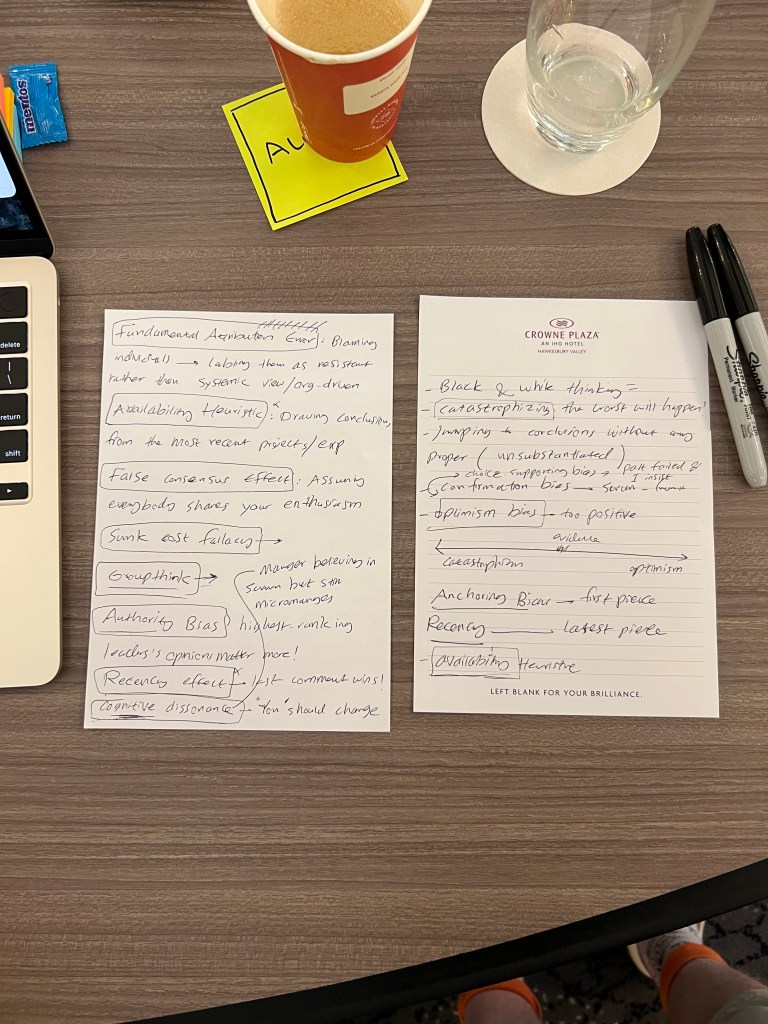 mentos
AU
delete
return
shift
Fundamental Attribution Error: Blaming
individuals → labling them as resistant
rather then systemic view/org-driven
Availability Heuristic x: Drawing conclusions
from the most recent projects/exp
False consensus effect: Assuming
everybody shares your enthusiasm
Sunk cost fallacy →
Groupthink →
Manager believing in
scrum but still
micromanages
Authority Bias highest-ranking
leaders's opinion matter more!
Recency effect x - last comment wins!
Cognitive dissonance - "You" should change
CROWNE PLAZA
AN IHG HOTEL
HAWKESBURY VALLEY
- Black & white thinking =
- catastrophizing the worst will happen!
- Jumping to conclusions without any
proper (unsubstantiated)
→ choice-supporting bias → past failed &
I insist
confirmation bias →
- optimism bias - too positive
evidence
catastrophism
optimism
Anchoring Bias → first piece
Recency → latest piece
- availability Heuristic
LEFT BLANK FOR YOUR BRILLIANCE.
Sharpie
Sharpie